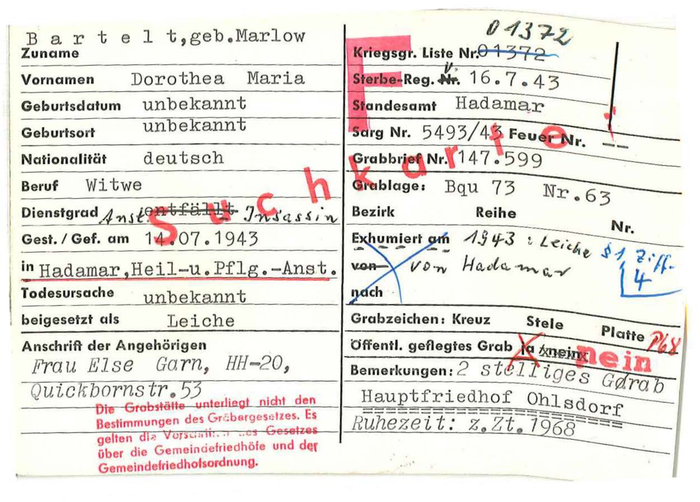 Bartelt,geb.Marlow
Zuname
Vornamen Dorothea Maria
Geburtsdatum unbekannt
Geburtsort unbekannt
Nationalität deutsch
Beruf Witwe
Dienstgrad Anst. entfällt Insassin
Gest./Gef. am 14.07.1943
in Hadamar,Heil-u.Pflg.-Anst.
Todesursache unbekannt
beigesetzt als Leiche
Anschrift der Angehörigen
Frau Else Garn, HH-20,
Quickbornstr.53
Die Grabstätte unterliegt nicht den
Bestimmungen des Gräbergesetzes. Es
gelten die des Gesetzes
über die Gemeindefriedhöfe und der
Gemeindefriedhofsordnung.
Suchkartei
F
01372
Kriegsgr. Liste Nr. 01372
Sterbe-Reg. Nr. v. 16.7.43
Standesamt Hadamar
Sarg Nr. 5493/43 Feuer Nr. --
Grabbrief Nr. 147.599
Grablage: Bqu 73 Nr.63
Bezirk Reihe Nr.
Exhumiert am 1943: Leiche §1 Ziff.
von von Hadamar 4
nach
Grabzeichen: Kreuz Stele Platte P68
Öffentl. gepflegtes Grab ja nein nein
Bemerkungen: 2 stelliges Grab
Hauptfriedhof Ohlsdorf
Ruhezeit: z.Zt.1968